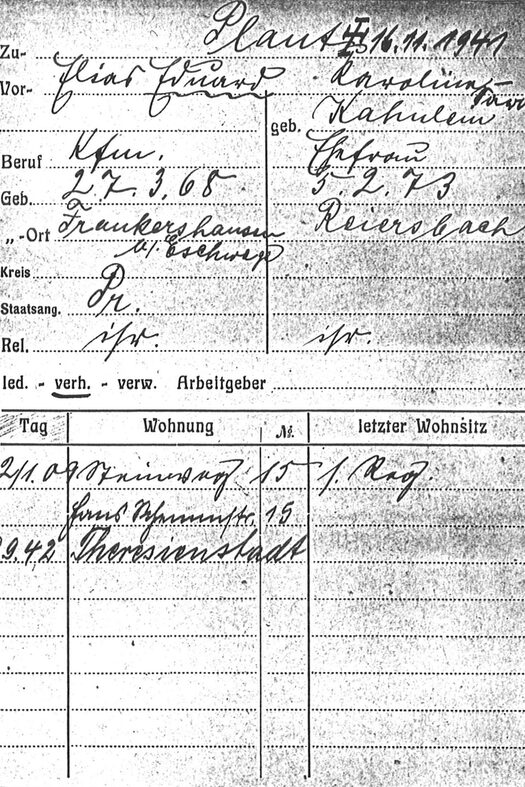 Plaut 16.11.1941
Zu-
Vor- Elias Eduard Karoline
geb. Kahnlein
Beruf Kfm. Ehefrau
Geb. 2.7.3.68 5.2.73
„-Ort Frankershausen Reiersbach
b/ Eschwege
Kreis
Staatsang. Pr.
Rel. isr. isr.
led. - verh. - verw. Arbeitgeber
Tag Wohnung № letzter Wohnsitz
2/1.09 Steinweg 15 s. Reg.
Hans Schemmstr. 15
9.42 Theresienstadt